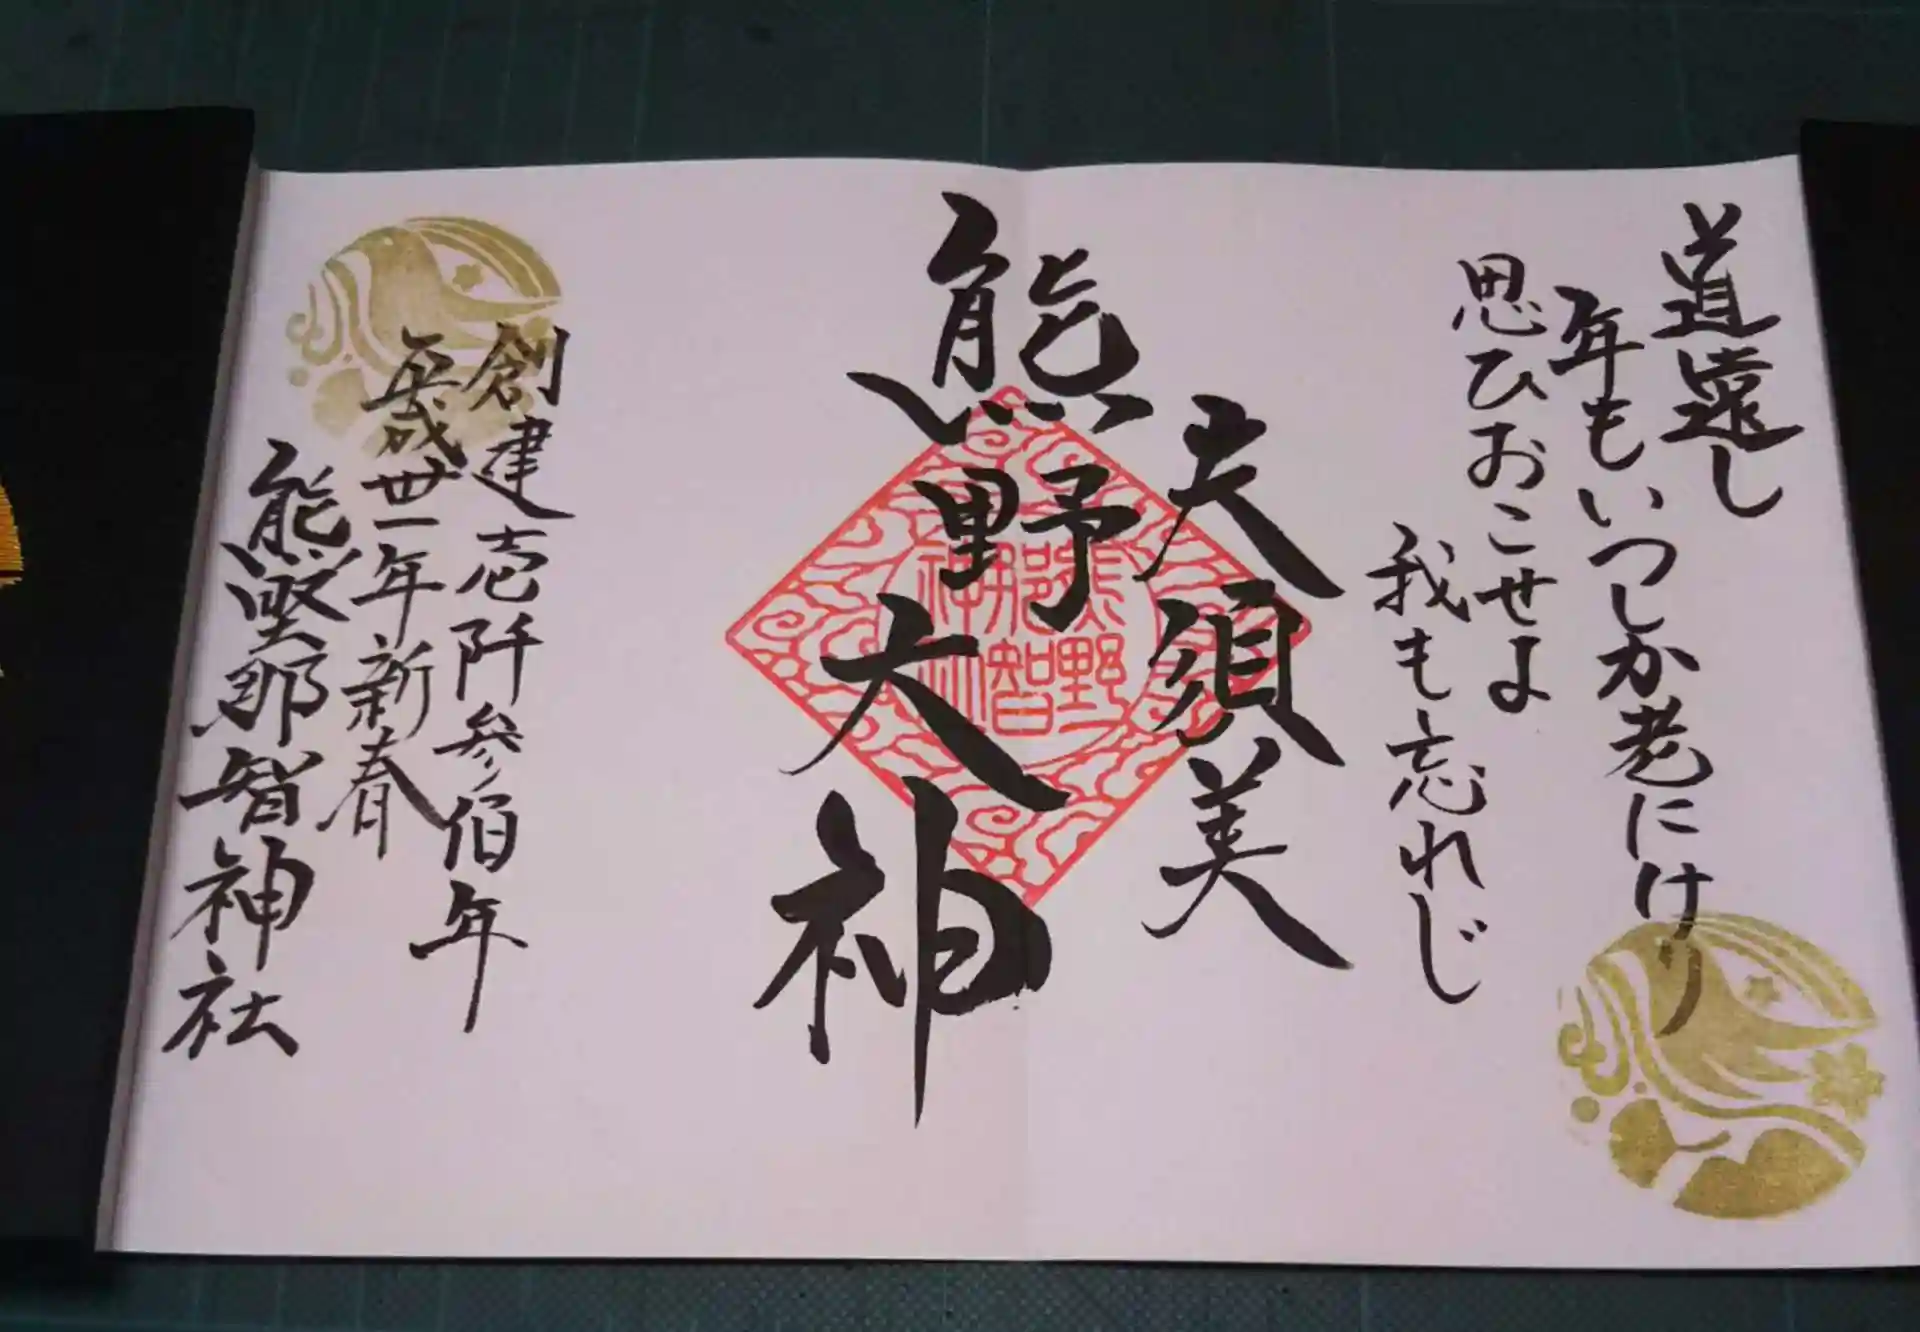 道遠し
年もいつしか老にけり
思ひおこせよ
我も忘れじ
夫須美
熊野大神
熊野
那智
神社
創建壱阡参伯年
平成丗一年新春
熊野那智神社